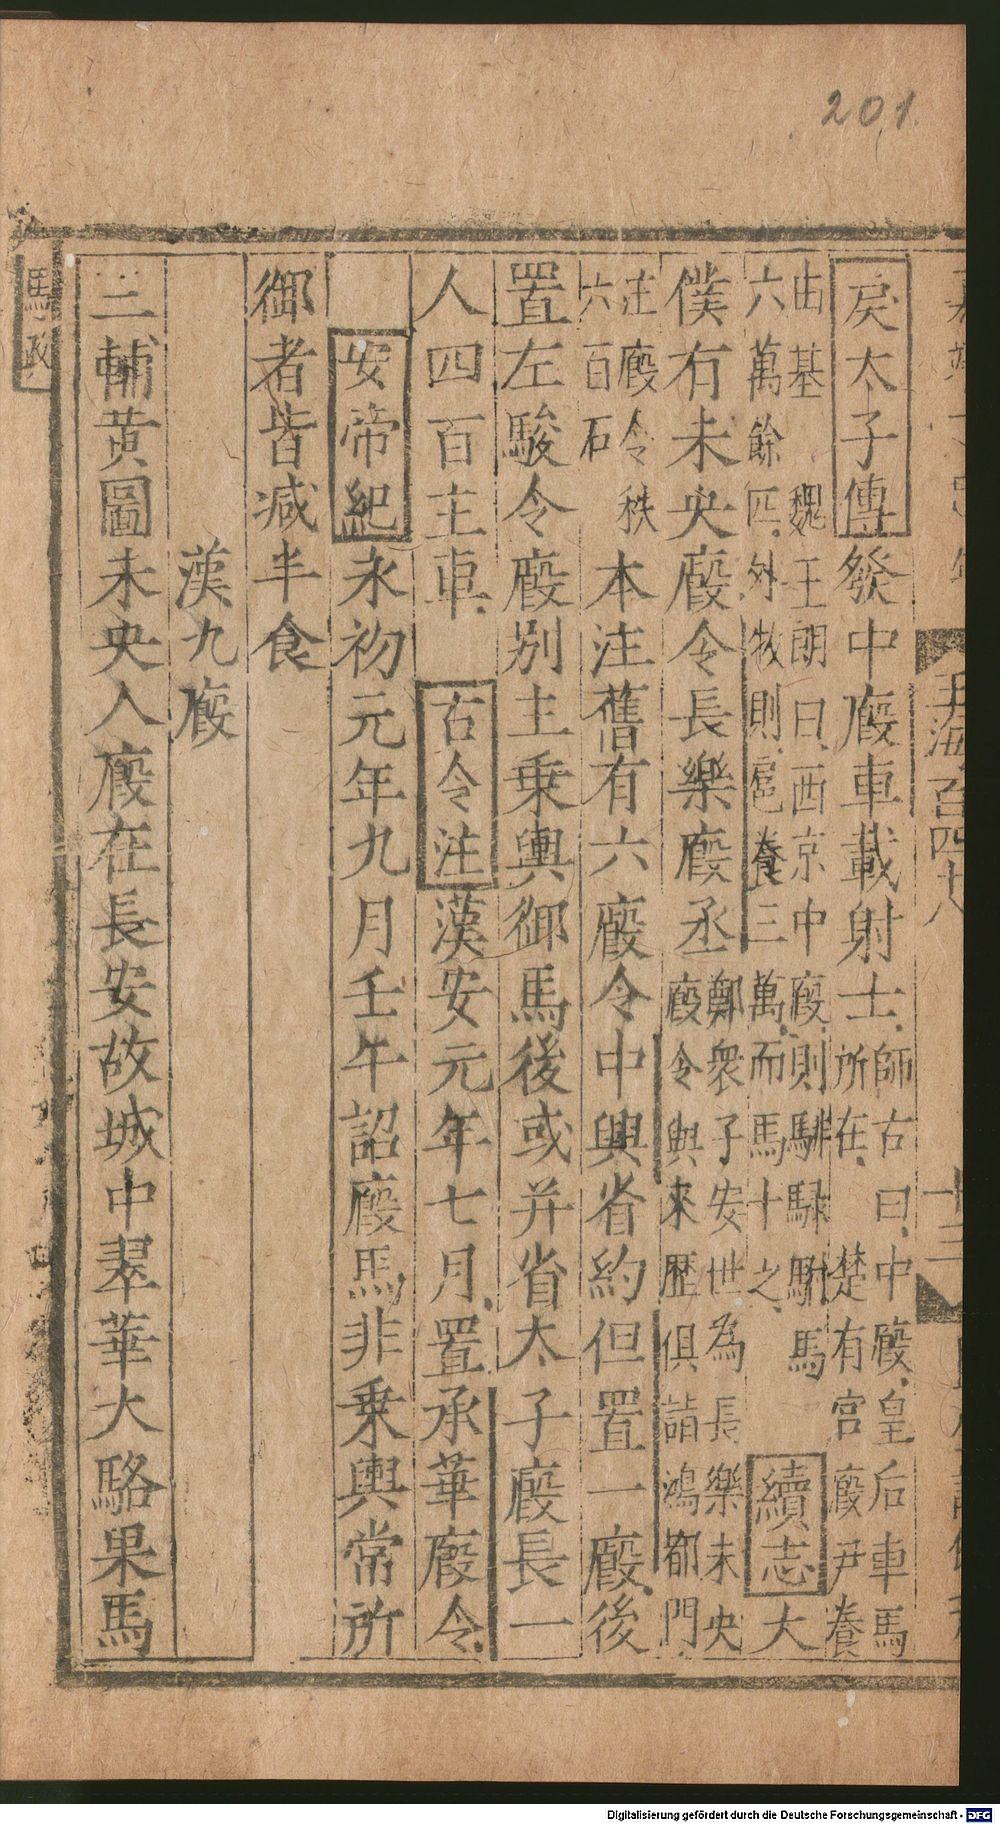 201
玉海百四十八
戾太子傳發中廄車載射士師古曰中廄皇后車馬
所在楚有宮廄尹養
由基魏王朗曰西京中廄則騑騄駙馬
六萬餘匹外牧則扈養三萬而馬十之續志大
僕有未央廄令長樂廄丞鄭衆子安世為長樂未央
廄令與來歷俱詣鴻都門
注廄令秩
六百石本注舊有六廄令中興省約但置一廄後
置左駿令廄別主乗輿御馬後或并省太子廄長一
人四百主車古今注漢安元年七月置承華廄令
安帝紀永初元年九月壬午詔廄馬非乗輿常所
御者皆減半食
漢九廄
三輔黃圖未央人廄在長安故城中翠華大駱果馬
馬政
Digitalisierung gefördert durch die Deutsche Forschungsgemeinschaft - DFG